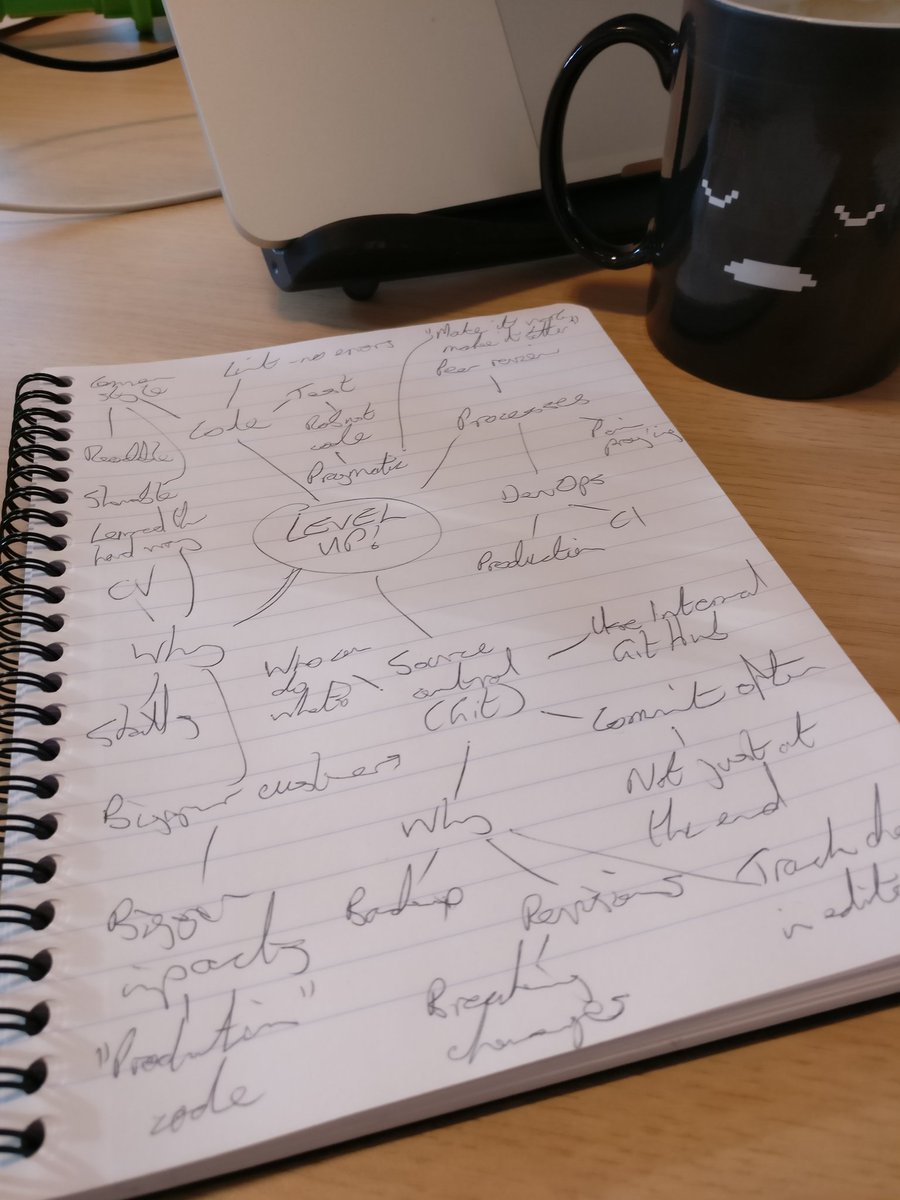 Common
style
Lint - no errors
"Make it work,
make it better"
Peer review
Code
Test
Robust
code
Pragmatic
Processes
Pair
Readable
Sharable
Learned the
hard way
CV
LEVEL
UP!
DevOps
CI
Production
Why
Who can
do
what?
Source
control
(Git)
Use Internal
GitHub
Commit often
Not just at
the end
Bigger customers
Why
Bigger
impacts
"Production"
code
Backup
Revisions
Breaking
changes
Track
in